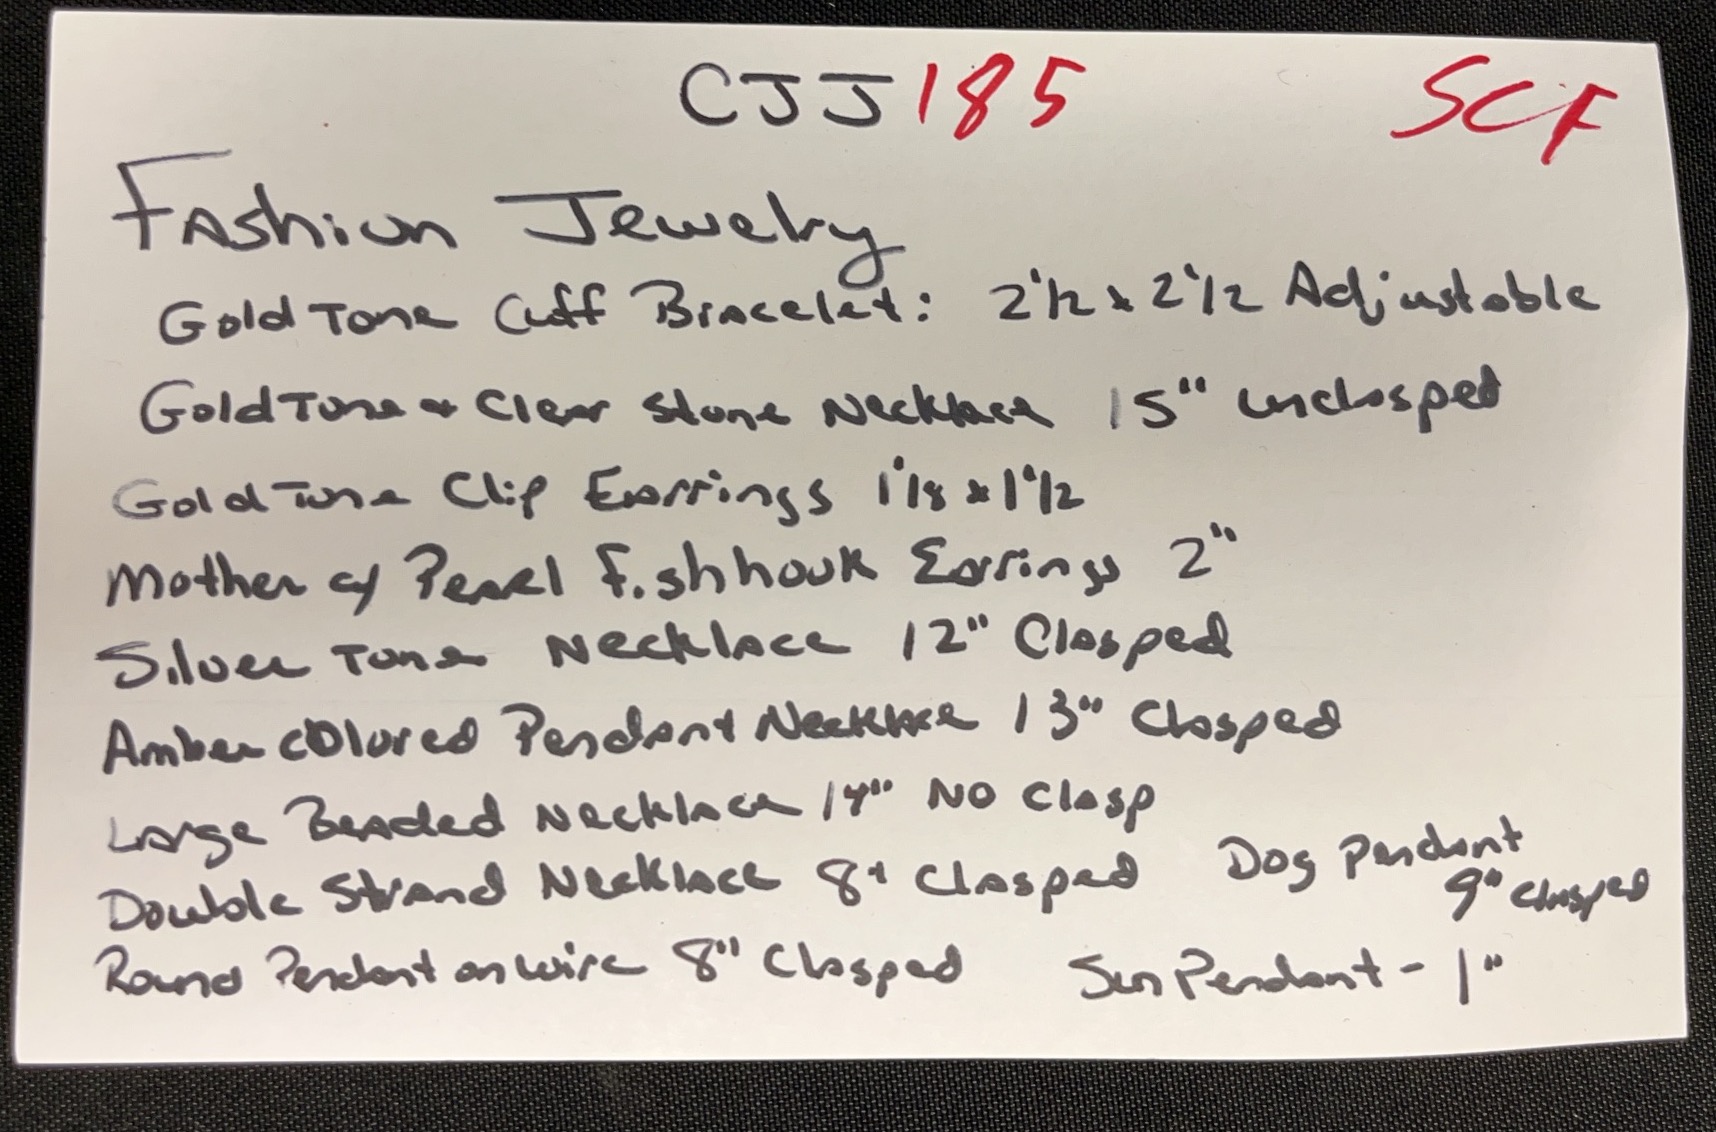 CJJ185 SCF
Fashion Jewelry
Gold Tone Cuff Bracelet: 2 1/2 x 2 1/2 Adjustable
Gold Tone + Clear Stone Necklace 15" unclasped
Gold Tone Clip Earrings 1 1/8 x 1 1/2
Mother of Pearl Fishhook Earrings 2"
Silver Tone Necklace 12" Clasped
Amber colored Pendant Necklace 13" Clasped
Large Beaded Necklace 14" NO Clasp
Double Strand Necklace 8" Clasped
Dog Pendant
9" Clasped
Round Pendant on wire 8" Clasped
Sun Pendant - 1"